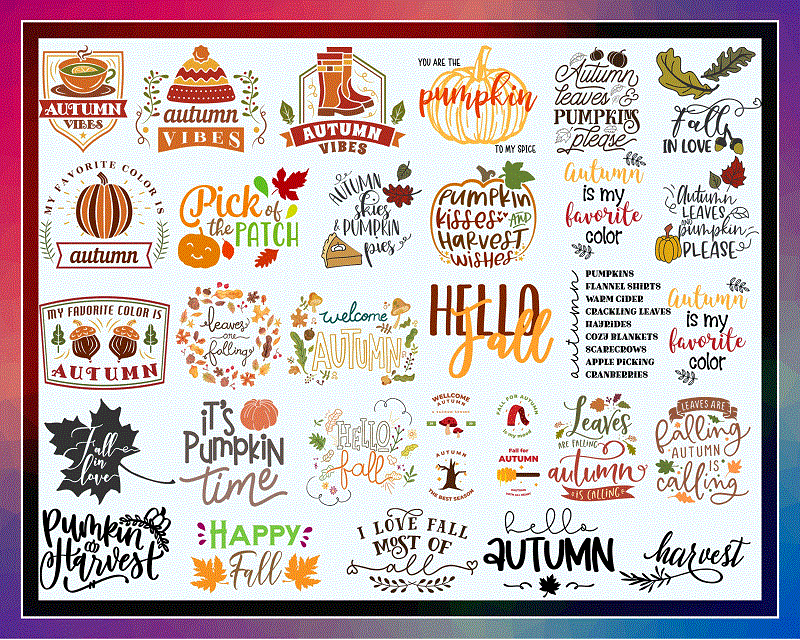 AUTUMN
VIBES
autumn
VIBES
AUTUMN
VIBES
YOU ARE THE
pumpkin
TO MY SPICE
Autumn
leaves &
PUMPKINS
please
Fall
IN LOVE
MY FAVORITE COLOR IS
autumn
Pick of
the PATCH
AUTUMN
skies
& PUMPKIN
pies
PUMPKIN
kisses AND
HARVEST
wishes
Autumn
is my
favorite
color
Autumn
LEAVES
AND
pumpkin
PLEASE
MY FAVORITE COLOR IS
AUTUMN
leaves
are
falling
welcome
AUTUMN
HELLO
Fall
autumn
PUMPKINS
FLANNEL SHIRTS
WARM CIDER
CRACKLING LEAVES
HAYRIDES
COZY BLANKETS
SCARECROWS
APPLE PICKING
CRANBERRIES
Autumn
is my
favorite
color
Fall
in
love
iT'S
Pumpkin
time
HELLO
fall
WELLCOME
AUTUMN
FALL FOR AUTUMN
AUTUMN
THE BEST SEASON
Fall for
AUTUMN
Leaves
ARE FALLING
autumn
IS CALLING
LEAVES ARE
falling
AUTUMN
IS
calling
Pumpkin
Harvest
HAPPY
Fall
I LOVE FALL
MOST OF
all
hello
AUTUMN
harvest